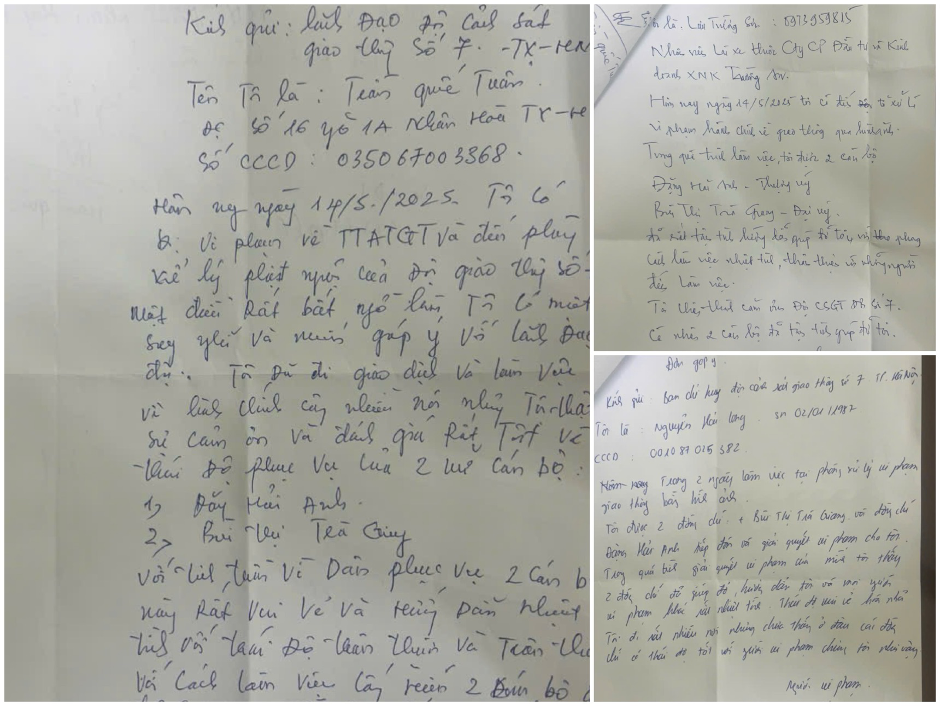 Kính gửi: lãnh Đạo Đội Cảnh sát
giao thông Số 7. -TX-HN
Tên Tôi là: Trần quốc Tuấn.
Đc Số 16 ngõ 1A Nhân Hoà TX-H
Số CCCD: 035067003368.
Hôm nay ngày 14/5./2025. Tôi Có
vi phạm về TTATGT và đến phòng
xử lý phạt nguội của Đội giao thông Số
một điều Rất bất ngờ làm Tôi Có một
suy nghĩ và muốn góp ý Với lãnh Đạo
đội. Tôi Đã đi giao dịch và làm việc
về hành chính nhiều nơi nhưng Tôi thật
sự cảm ơn và đánh giá Rất Tốt về
thái Độ phục vụ của 2 cán bộ:
1, Đặng Hải Anh.
2, Bùi Thị Trà Giang
với tinh thần Vì Dân phục vụ 2 Cán b
này Rất Vui Vẻ và hướng Dẫn nhiệt
tình với thái Độ thân thiện và
với Cách làm việc 2 cán bộ
Tôi là. Lưu Trường Sơn: 0973959815
Nhân viên Lái xe thuộc Cty CP Đầu tư và Kinh
doanh XNK Trường
Hôm nay ngày 14/5/2025 tôi có đến xử lí
vi phạm hành chính về giao thông qua hình ảnh.
Trong quá trình làm việc, tôi được 2 cán bộ
Đặng Hải Anh - Thượng uý
Bùi Thị Trà Giang - Đại uý.
đã rất tận tình hướng dẫn giúp đỡ tôi, với phong
cách làm việc nhiệt tình, thân thiện với những người
đến làm việc.
Tôi chân thành cảm ơn Đội CSGT số 7.
Cá nhân 2 cán bộ đã tận tình giúp đỡ tôi.
Đơn góp ý.
Kính gửi. Ban chỉ huy đội cảnh sát giao thông số 7 TP. Hà Nội
Tôi là: Nguyễn Hải Long. sn 02/01/1987
CCCD: 001087025382.
Trong 2 ngày làm việc tại phòng xử lý vi phạm
giao thông bằng hình ảnh.
Tôi được 2 đồng chí. + Bùi Thị Trà Giang và đồng chí
Đặng Hải Anh tiếp đón và giải quyết vi phạm cho tôi.
Trong quá trình giải quyết vi phạm của mình tôi thấy
2 đồng chí đã giúp đỡ, hướng dẫn tôi và mọi người
vi phạm khác rất nhiệt tình. Thái độ vui vẻ hòa nhã
Tôi đi rất nhiều nơi nhưng chưa thấy ở đâu các đồng
chí có thái độ tốt với người vi phạm chúng tôi như vậy
Người vi phạm.